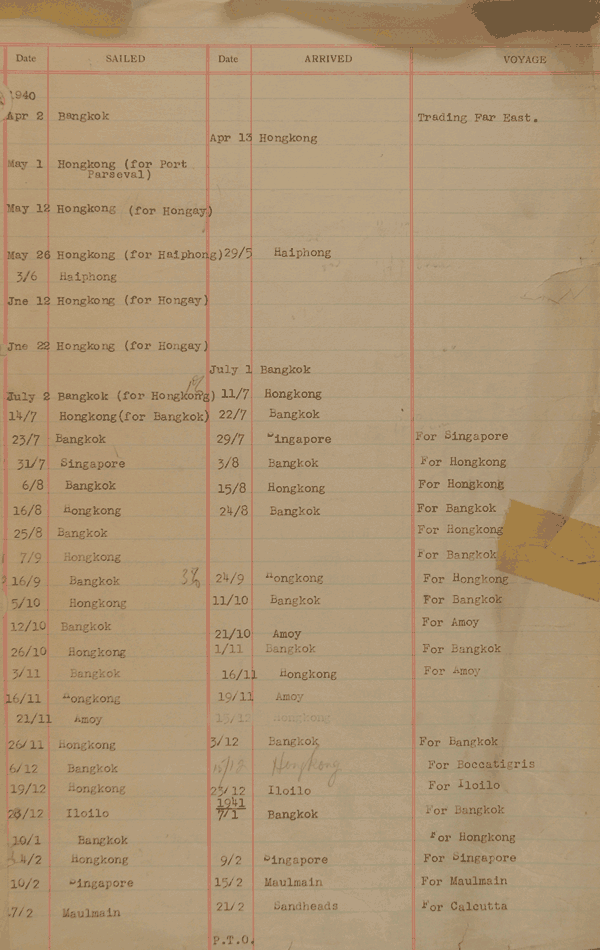 Date SAILED Date ARRIVED VOYAGE
1940
Apr 2 Bangkok Trading Far East.
Apr 13 Hongkong
May 1 Hongkong (for Port
Parseval)
May 12 Hongkong (for Hongay)
May 26 Hongkong (for Haiphong) 29/5 Haiphong
3/6 Haiphong
Jne 12 Hongkong (for Hongay)
Jne 22 Hongkong (for Hongay)
July 1 Bangkok
July 2 Bangkok (for Hongkong) 11/7 Hongkong
14/7 Hongkong(for Bangkok) 22/7 Bangkok
23/7 Bangkok 29/7 Singapore For Singapore
31/7 Singapore 3/8 Bangkok For Hongkong
6/8 Bangkok 15/8 Hongkong For Hongkong
16/8 Hongkong 24/8 Bangkok For Bangkok
25/8 Bangkok For Hongkong
7/9 Hongkong For Bangkok
16/9 Bangkok 24/9 Hongkong For Hongkong
5/10 Hongkong 11/10 Bangkok For Bangkok
12/10 Bangkok 21/10 Amoy For Amoy
26/10 Hongkong 1/11 Bangkok For Bangkok
3/11 Bangkok 16/11 Hongkong For Amoy
16/11 Hongkong 19/11 Amoy
21/11 Amoy 15/12 Hongkong
26/11 Hongkong 3/12 Bangkok For Bangkok
6/12 Bangkok 15/12 Hongkong For Boccatigris
19/12 Hongkong 23/12 Iloilo For Iloilo
1941
28/12 Iloilo 7/1 Bangkok For Bangkok
10/1 Bangkok For Hongkong
4/2 Hongkong 9/2 Singapore For Singapore
10/2 Singapore 15/2 Maulmain For Maulmain
7/2 Maulmain 21/2 Sandheads For Calcutta
P.T.O.